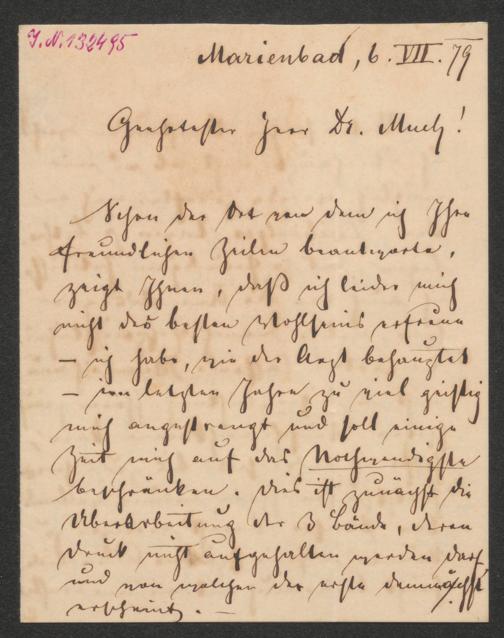 J. N. 132495
Marienbad, 6. VII. 79
Geehrtester Herr Dr. Much!
Schon der Ort von dem ich Ihre
freundlichen Zeilen beantworte,
zeigt Ihnen, daß ich leider mich
nicht des besten Wohlseins erfreue
– ich habe, wie der Arzt behauptet
– im letzten Jahre zu viel geistig
mich angestrengt und soll einige
Zeit mich auf das Nothwendigste
beschränken. Dies ist zunächst die
Überarbeitung der 3 Bände, deren
Druck nicht aufgehalten werden darf
und von welchen der erste demnächst
erscheint. –